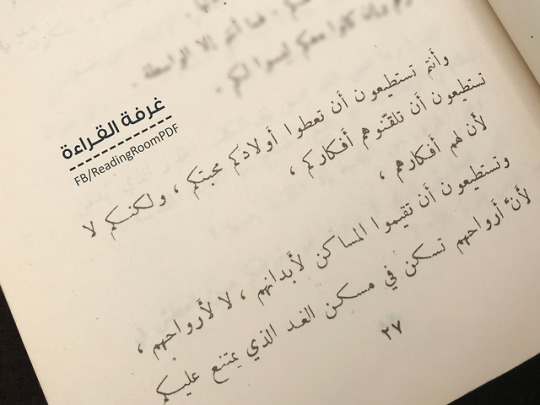 فما أنتم إلا الواسطة.
وإن كانوا معكم ليسوا لكم.
غرفة القراءة
FB/ReadingRoomPDF
وأنتم تستطيعون أن تعطوا أولادكم محبتكم ، ولكنكم لا
تستطيعون أن تلقنوهم أفكاركم ،
لأن لهم أفكارهم ،
وتستطيعون أن تقيموا المساكن لأبدانهم ، لا لأرواحهم ،
لأن أرواحهم تسكن في مسكن الغد الذي يمتنع عليكم
٢٧